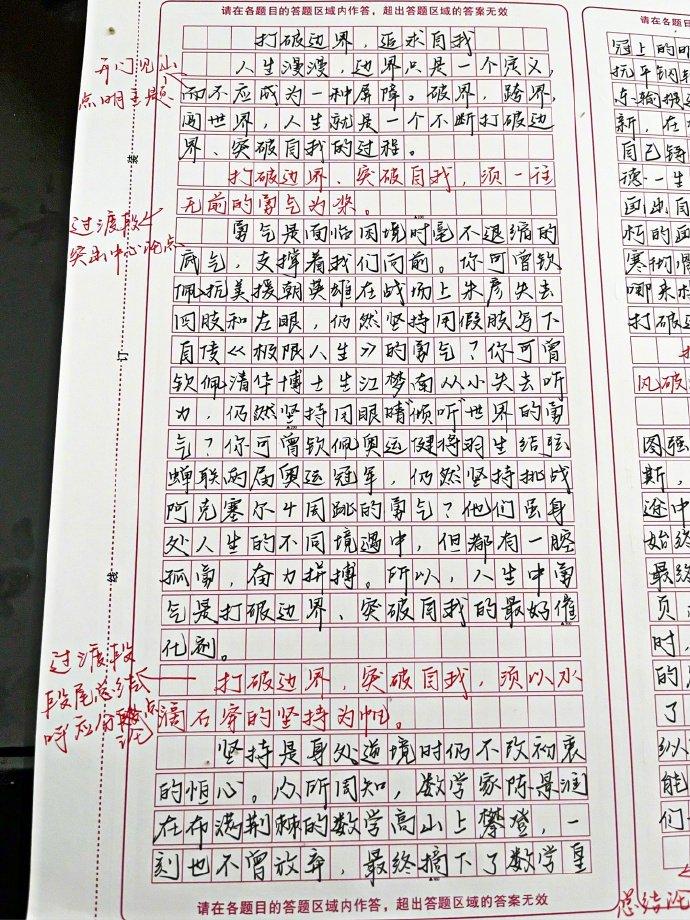 请在各题目的答题区域内作答，超出答题区域的答案无效
打破边界，追求自我
人生漫漫，边界只是一个定义，
而不应成为一种屏障。破界，跨界，
闯世界，人生就是一个不断打破边
界、突破自我的过程。
打破边界、突破自我，须一往
无前的勇气为桨。
勇气是面临困境时毫不退缩的
底气，支撑着我们向前。你可曾钦
佩抗美援朝英雄在战场上朱彦失去
四肢和左眼，仍然坚持用假肢写下
自传《极限人生》的勇气？你可曾
钦佩清华博士生江梦南从小失去听
力，仍然坚持用眼睛“倾听”世界的勇
气？你可曾钦佩奥运健将羽生结弦
蝉联两届奥运冠军，仍然坚持挑战
阿克塞尔4周跳的勇气？他们虽身
处人生的不同境遇中，但都有一腔
孤勇，奋力拼搏。所以，人生中勇
气是打破边界、突破自我的最好催
化剂。
打破边界，突破自我，须以水
滴石穿的坚持为帆。
坚持是身处逆境时仍不改初衷
的恒心。众所周知，数学家陈景润
在布满荆棘的数学高山上攀登，一
刻也不曾放弃，最终摘下了数学皇
请在各题目的答题区域内作答，超出答题区域的答案无效
开门见山
点明主题
过渡段
突出中心论点
过渡段
段尾总结
呼应分论点
装
订
线
请在各题目
冠上的明
新，在
自己铸
德一生
画出自
朽的画
寒彻骨
哪来
打破边
风破
图强
斯，
途中
始终
最终
页
时，
的
了
纵
能
们
总结论